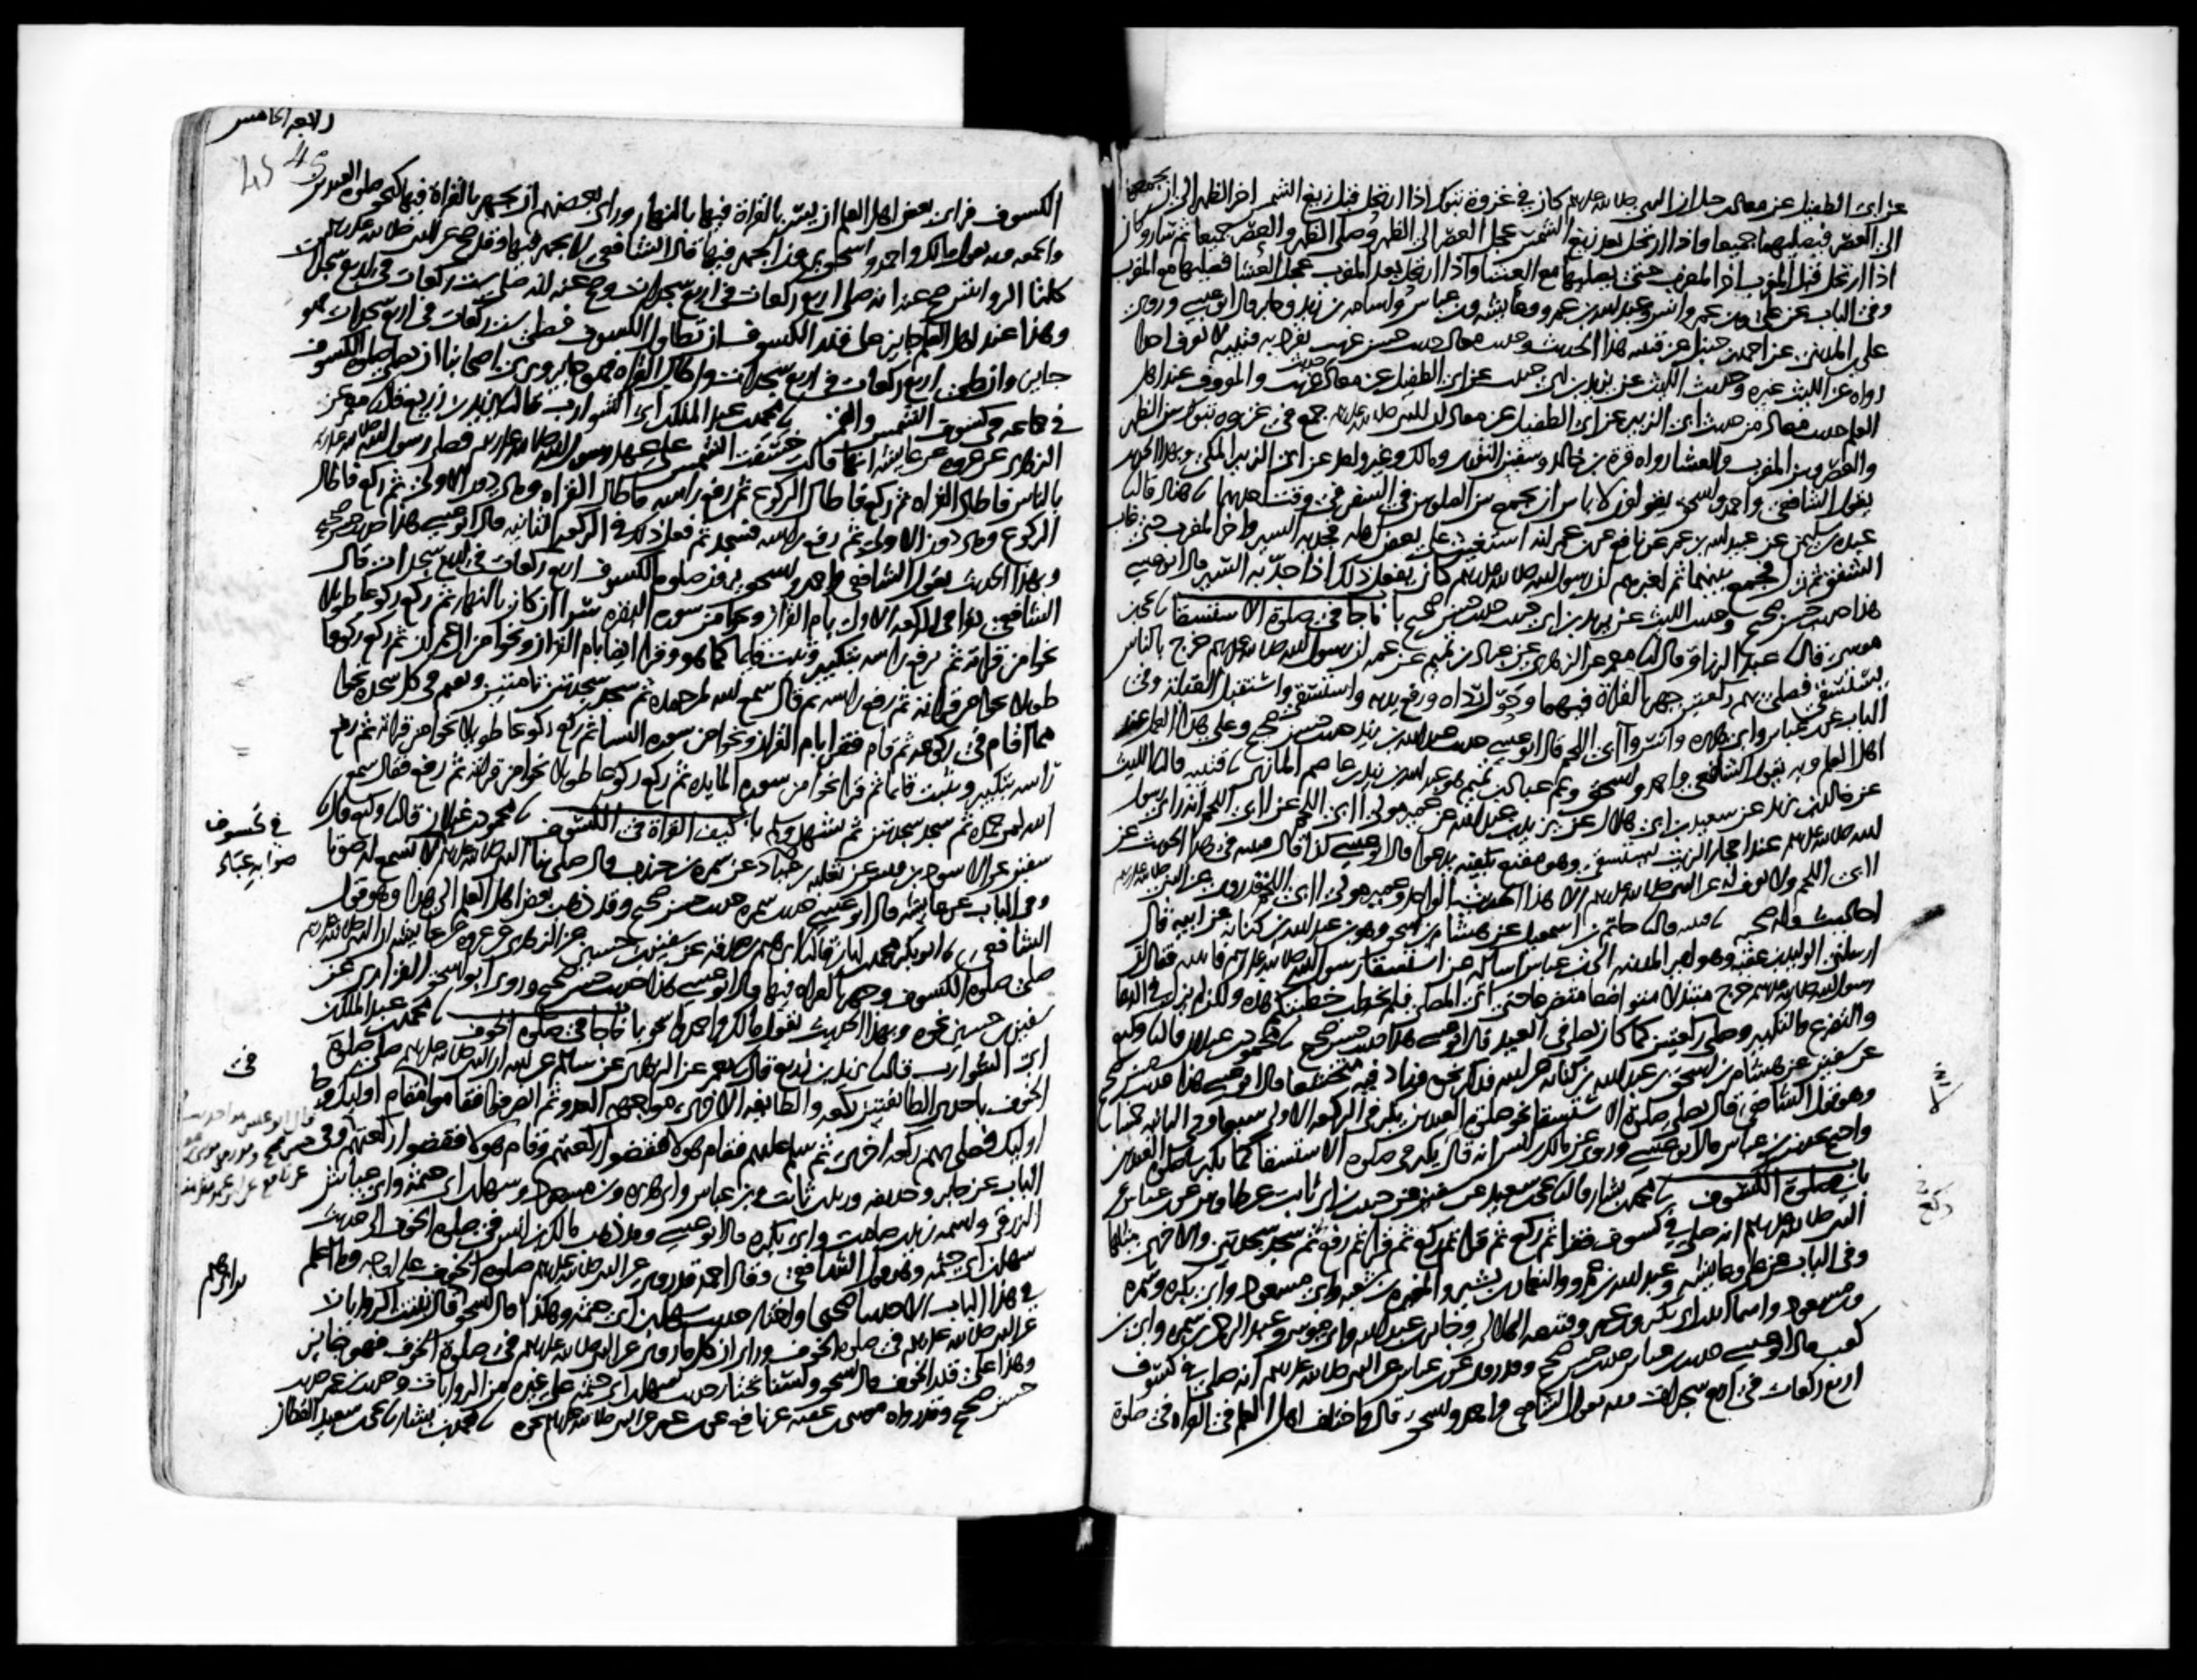 عن ابى الطفيل عن معاذ بن جبل ان النبى صلى الله عليه وسلم كان في غزوة تبوك اذا ارتحل قبل زيغ الشمس اخر الظهر الى ان يجمعها
الى العصر فيصليهما جميعا واذا ارتحل بعد زيغ الشمس عجل العصر الى الظهر وصلى الظهر والعصر جميعا ثم سار وكان
اذا ارتحل قبل المغرب اخر المغرب حتى يصليها مع العشا واذا ارتحل بعد المغرب عجل العشا فصلاها مع المغرب
وفى الباب عن على وبن عمر وانس وعبد الله بن عمرو وعايشه وبن عباس واسامه بن زيد وجابر قال ابو عيسى وروى
على بن المدينى عن احمد بن حنبل عن قتيبه هذا الحديث وحديث معاذ حديث حسن غريب تفرد به قتيبه لا نعرف احدا
رواه عن الليث غيره وحديث الليث عن يزيد بن ابى حبيب عن ابى الطفيل عن معاذ حديث غريب والمعروف عند اهل
العلم حديث معاذ من حديث ابى الزبير عن ابى الطفيل عن معاذ ان النبى صلى الله عليه وسلم جمع فى غزوه تبوك بين الظهر
والعصر وبين المغرب والعشا رواه قرة بن خالد وسفين الثورى ومالك وغير واحد عن ابى الزبير المكى وبهذا الحديث
يقول الشافعى واحمد واسحق يقولون لا باس ان يجمع بين الصلوتين فى السفر فى وقت احديهما نا هناد قال نا
عبدة بن سليمن عن عبيد الله بن عمر عن نافع عن بن عمر انه استغيث على بعض اهله فجد به السير واخر المغرب حتى غاب
الشفق ثم نزل فجمع بينهما ثم اخبرهم ان رسول الله صلى الله عليه وسلم كان يفعل ذلك اذا جد به السير قال ابو عيسى
هذا حديث حسن صحيح وحديث الليث عن يزيد بن ابى حبيب حديث حسن صحيح باب ما جا فى صلوة الاستسقا نا يحيى بن
موسى قال نا عبد الرزاق قال نا معمر عن الزهرى عن عباد بن تميم عن عمه ان رسول الله صلى الله عليه وسلم خرج بالناس
يستسقى فصلى بهم ركعتين جهر بالقراة فيهما وحول رداه ورفع يديه واستسقى واستقبل القبلة وفى
الباب عن بن عباس وابى هريره وانس وآبى اللحم قال ابو عيسى حديث عبد الله بن زيد حديث حسن صحيح وعلى هذا العمل عند
اهل العلم وبه يقول الشافعى واحمد واسحق وعم عباد بن تميم هو عبد الله بن زيد بن عاصم المازنى نا قتيبه قال نا الليث
عن خالد بن يزيد عن سعيد بن ابى هلال عن يزيد بن عبد الله عن عمير مولى آبى اللحم عن آبى اللحم انه راى رسول
الله صلى الله عليه وسلم عند احجار الزيت يستسقى وهو مقنع بكفيه يدعوا قال ابو عيسى كذا قال قتيبه فى هذا الحديث عن
آبى اللحم ولا نعرف له عن النبى صلى الله عليه وسلم الا هذا الحديث الواحد وعمير مولى آبى اللحم قد روى عن النبى صلى الله عليه وسلم
احاديث وله صحبه نا قتيبه قال نا حاتم بن اسمعيل عن هشام بن اسحق وهو بن عبد الله بن كنانه عن ابيه قال
ارسلنى الوليد بن عقبه وهو امير المدينه الى بن عباس اساله عن استسقا رسول الله صلى الله عليه وسلم فاتيته فقال ان
رسول الله صلى الله عليه وسلم خرج متبذلا متواضعا متضرعا حتى اتى المصلى فلم يخطب خطبتكم هذه ولكن لم يزل فى الدعا
والتضرع والتكبير وصلى ركعتين كما كان يصلى فى العيد قال ابو عيسى هذا حديث حسن صحيح نا محمود بن غيلان قال نا وكيع
عن سفين عن هشام بن اسحق بن عبد الله بن كنانه عن ابيه فذكر نحوه وزاد فيه متخشعا قال ابو عيسى هذا حديث حسن صحيح
وهو قول الشافعى قال يصلى صلوة الاستسقا نحو صلوة العيدين يكبر فى الركعه الاولى سبعا وفى الثانيه خمسا
واحتج بحديث بن عباس قال ابو عيسى وروى عن مالك بن انس انه قال لا يكبر فى صلوة الاستسقا كما يكبر فى صلوة العيدين
باب فى صلوة الكسوف نا محمد بن بشار قال نا يحيى بن سعيد عن سفين عن حبيب بن ابى ثابت عن طاوس عن بن عباس عن
النبى صلى الله عليه وسلم انه صلى فى كسوف فقرا ثم ركع ثم قرا ثم ركع ثم قرا ثم رفع ثم سجد سجدتين والاخرى مثلها
وفى الباب عن على وعايشه وعبد الله بن عمرو والنعمان بن بشير والمغيره بن شعبه وابى مسعود وابى بكره وسمره
وبن مسعود واسما ابنة ابى بكر وبن عمر وقبيصه الهلالى وجابر بن عبد الله وابى موسى وعبد الرحمن بن سمره وابى بن
كعب قال ابو عيسى حديث بن عباس حديث حسن صحيح وقد روى عن بن عباس عن النبى صلى الله عليه وسلم انه صلى فى كسوف
اربع ركعات فى اربع سجدات وبه يقول الشافعى واحمد واسحق قال واختلف اهل العلم فى القراه فى صلوة
الكسوف فراى بعض اهل العلم ان يسر بالقراة فيها بالنهار وراى بعضهم ان يجهر بالقراة فيها كنحو صلوة العيدين
والجمعه وبه يقول مالك واحمد واسحق يرون الجهر فيها قال الشافعى لا يجهر فيها وقد صح عن النبى صلى الله عليه وسلم
كلتا الروايتين صح عنه انه صلى اربع ركعات فى اربع سجدات وصح عنه انه صلى ست ركعات فى اربع سجدات
وهذا عند اهل العلم جايز على قدر الكسوف ان تطاول الكسوف فصلى ست ركعات فى اربع سجدات فهو
جايز وان صلى اربع ركعات فى اربع سجدات واطال القراه فهو جايز ويرى اصحابنا ان يصلى صلوة الكسوف
فى جماعه فى كسوف الشمس والقمر نا محمد بن عبد الملك بن ابى الشوارب قال نا يزيد بن زريع قال نا معمر عن
الزهرى عن عروه عن عايشه انها قالت خسفت الشمس على عهد رسول الله صلى الله عليه وسلم فصلى رسول الله صلى الله عليه وسلم
بالناس فاطال القراه ثم ركع فاطال الركوع ثم رفع راسه فاطال القراه وهى دون الاولى ثم ركع فاطال
الركوع وهو دون الاول ثم رفع راسه فسجد ثم فعل ذلك فى الركعه الثانيه قال ابو عيسى هذا حديث حسن صحيح
وبهذا الحديث يقول الشافعى واحمد واسحق يرون صلوة الكسوف اربع ركعات فى اربع سجدات قال
الشافعى يقرا فى الركعه الاولى بام القران ونحوا من سورة البقره سرا ان كان بالنهار ثم ركع ركوعا طويلا
نحوا من قراته ثم رفع راسه بتكبير وثبت قايما كما هو وقرا ايضا بام القران ونحوا من ال عمران ثم ركع ركوعا
طويلا نحوا من قراته ثم رفع راسه ثم قال سمع الله لمن حمده ثم سجد سجدتين تامتين ويقيم فى كل سجده نحوا
مما اقام فى ركوعه ثم قام فقرا بام القران ونحوا من سورة النسا ثم ركع ركوعا طويلا نحوا من قراته ثم رفع
راسه بتكبير وثبت قايما ثم قرا نحوا من سورة المايده ثم ركع ركوعا طويلا نحوا من قراته ثم رفع فقال سمع
الله لمن حمده ثم سجد سجدتين ثم تشهد وسلم باب كيف القراة فى الكسوف نا محمود بن غيلان قال نا وكيع قال نا
سفين عن الاسود بن قيس عن ثعلبه بن عباد عن سمره بن جندب قال صلى بنا النبى صلى الله عليه وسلم لا نسمع له صوتا
وفى الباب عن عايشه قال ابو عيسى حديث سمره حديث حسن صحيح وقد ذهب بعض اهل العلم الى هذا وهو قول
الشافعى نا ابو بكر محمد بن ابان قال نا ابرهيم بن صدقه عن سفين بن حسين عن الزهرى عن عروه عن عايشه ان النبى صلى الله عليه وسلم
صلى صلوة الكسوف وجهر بالقراه فيها قال ابو عيسى هذا حديث حسن صحيح وروى ابو اسحق الفزارى عن
سفين بن حسين نحوه وبهذا الحديث يقول مالك واحمد واسحق باب ما جا فى صلوة الخوف نا محمد بن عبد الملك بن
ابى الشوارب قال نا يزيد بن زريع قال نا معمر عن الزهرى عن سالم عن ابيه ان النبى صلى الله عليه وسلم صلى صلوة
الخوف باحدى الطايفتين ركعه والطايفه الاخرى مواجهه العدو ثم انصرفوا فقاموا مقام اوليك وجا
اوليك فصلى بهم ركعه اخرى ثم سلم عليهم فقام هولا فقضوا ركعتهم وقام هولا فقضوا ركعتهم وفى
الباب عن جابر وحذيفه وزيد بن ثابت وبن عباس وابى هريره وبن مسعود وسهل بن ابى حثمه وابى عياش
الزرقى واسمه زيد بن صامت وابى بكره قال ابو عيسى وقد ذهب مالك بن انس فى صلوة الخوف الى حديث
سهل بن ابى حثمه وهو قول الشافعى وقال احمد قد روى عن النبى صلى الله عليه وسلم صلوة الخوف على اوجه وما اعلم
فى هذا الباب الا حديثا صحيحا واختار حديث سهل بن ابى حثمه وهكذا قال اسحق قال ثبتت الروايات
عن النبى صلى الله عليه وسلم فى صلوة الخوف وراى ان كل ما روى عن النبى صلى الله عليه وسلم فى صلوة الخوف فهو جايز
وهذا على قدر الخوف قال اسحق ولسنا نختار حديث سهل بن ابى حثمه على غيره من الروايات وحديث بن عمر حديث
حسن صحيح وقد رواه موسى بن عقبه عن نافع عن بن عمر عن النبى صلى الله عليه وسلم نحوه نا محمد بن بشار نا يحيى بن سعيد القطان
45
في كسوف
صوابه عباد